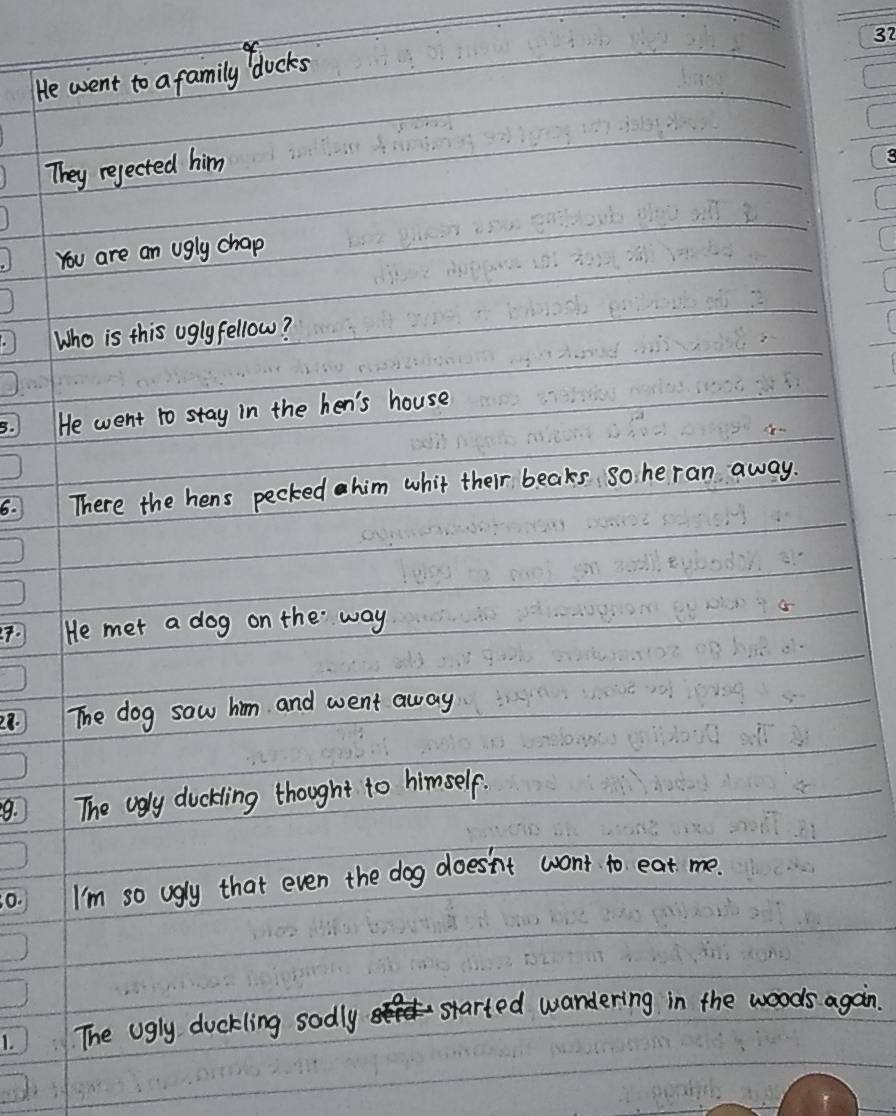 32
He went to a family of ducks
They rejected him
3
You are an ugly chap
Who is this ugly fellow?
5. He went to stay in the hen's house
6. There the hens pecked him whit their beaks so he ran away.
27. He met a dog on the way
28. The dog saw him and went away
29. The ugly duckling thought to himself.
30. I'm so ugly that even the dog does'nt want to eat me.
1. The ugly duckling sadly started wandering in the woods again.